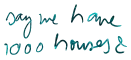 say we have
1000 houses &